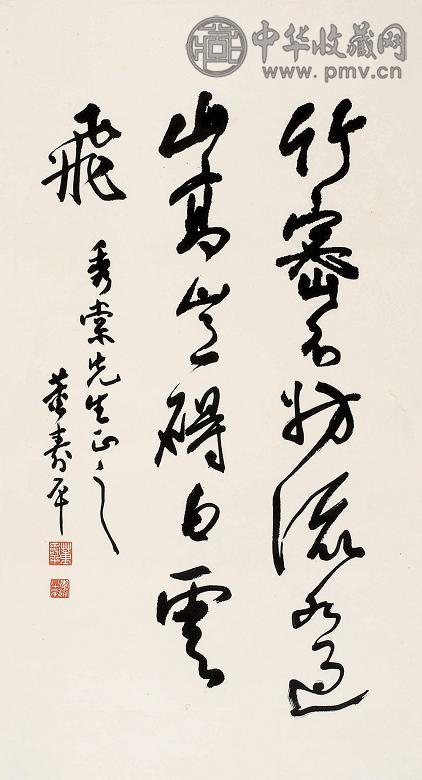 中华收藏网
www.pmv.cn
竹密不妨流水过
山高岂碍白云
飛
秀棠先生正之
董寿平